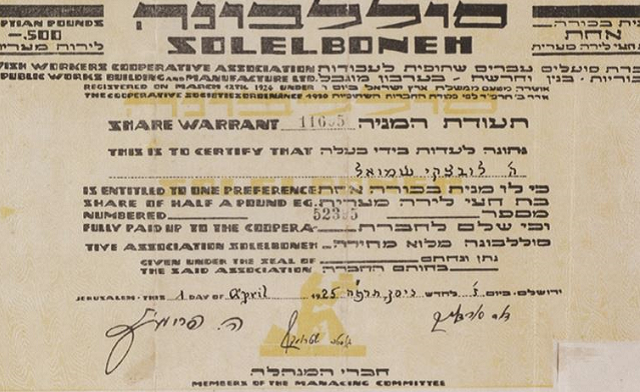 סוללבונה
PTIAN POUNDS
-.500
לירות מצריות
SOLELBONEH
ית בכורה..
אחת
חצי לירה מצרית
WISH WORKERS COOPERATIVE ASSOCIATION ברת פועלים עברים שתופית לעבודות
PUBLIC WORKS BUILDING AND MANUFACTURE LTD. בוריות, בנין וחרשת - בערבון מוגבל
REGISTERED ON MARCH 12TH. 1924 UNDER
THE COOPERATIVE SOCIETIES ORDINANCE 1920
SHARE WARRANT 11695 תעודת המניה
THIS IS TO CERTIFY THAT נתונה לעדות בידי בעלה
ה' לובצקי שמואל
IS ENTITLED TO ONE PREFERENCE כי לו מנית בכורה אחת
SHARE OF HALF A POUND EG. בת חצי לירה מצרית
NUMBERED 52395 מספר
FULLY PAID UP TO THE COOPERA- וכי שלם לחברת
TIVE ASSOCIATION SOLELBONEH סוללבונה מלוא מחירה.
GIVEN UNDER THE SEAL OF נתן ונחתם
THE SAID ASSOCIATION בחותם החברה
JERUSALEM, THIS 1 DAY OF April 1925 ירושלים, ביום ז' לחדש ניסן תרפ"ה
חברי המנהלה
MEMBERS OF THE MANAGING COMMITTEE